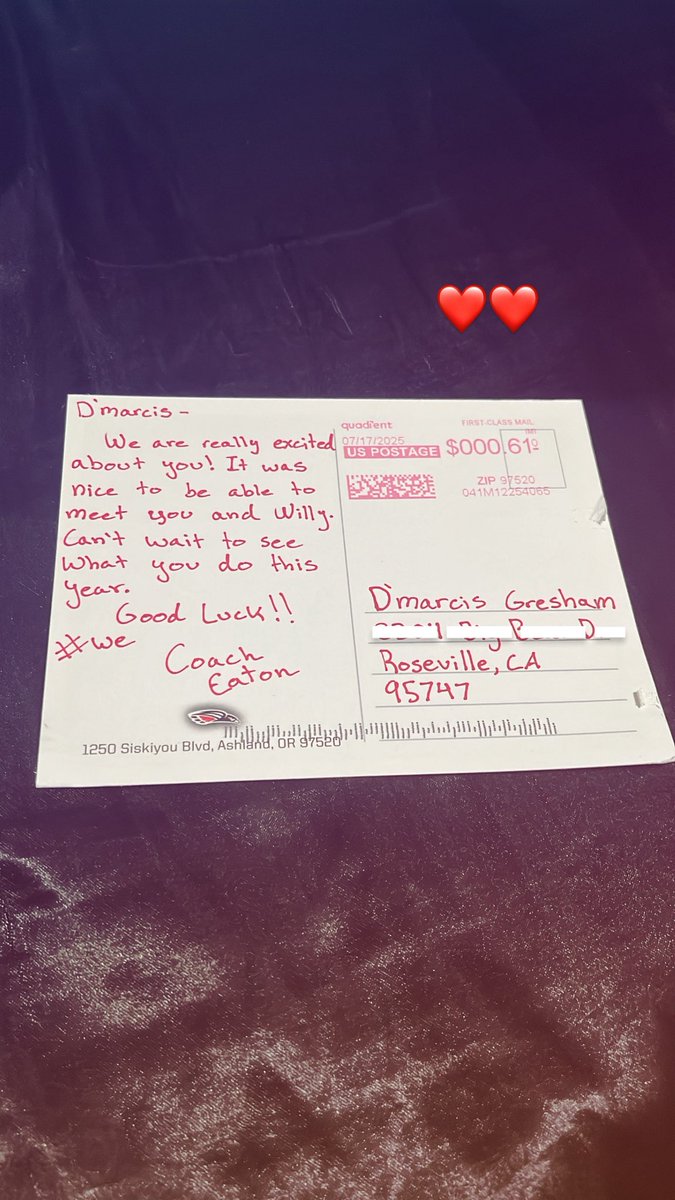 D'marcis -
We are really excited
about you! It was
nice to be able to
meet you and Willy.
Can't wait to see
What you do this
year.
Good Luck!!
#We
Coach
Eaton
1250 Siskiyou Blvd, Ashland, OR 97520
quadient
FIRST-CLASS MAIL
IMI
07/17/2025
US POSTAGE $000.61⁰
ZIP 97520
041M12254065
D'marcis Gresham
Roseville, CA
95747